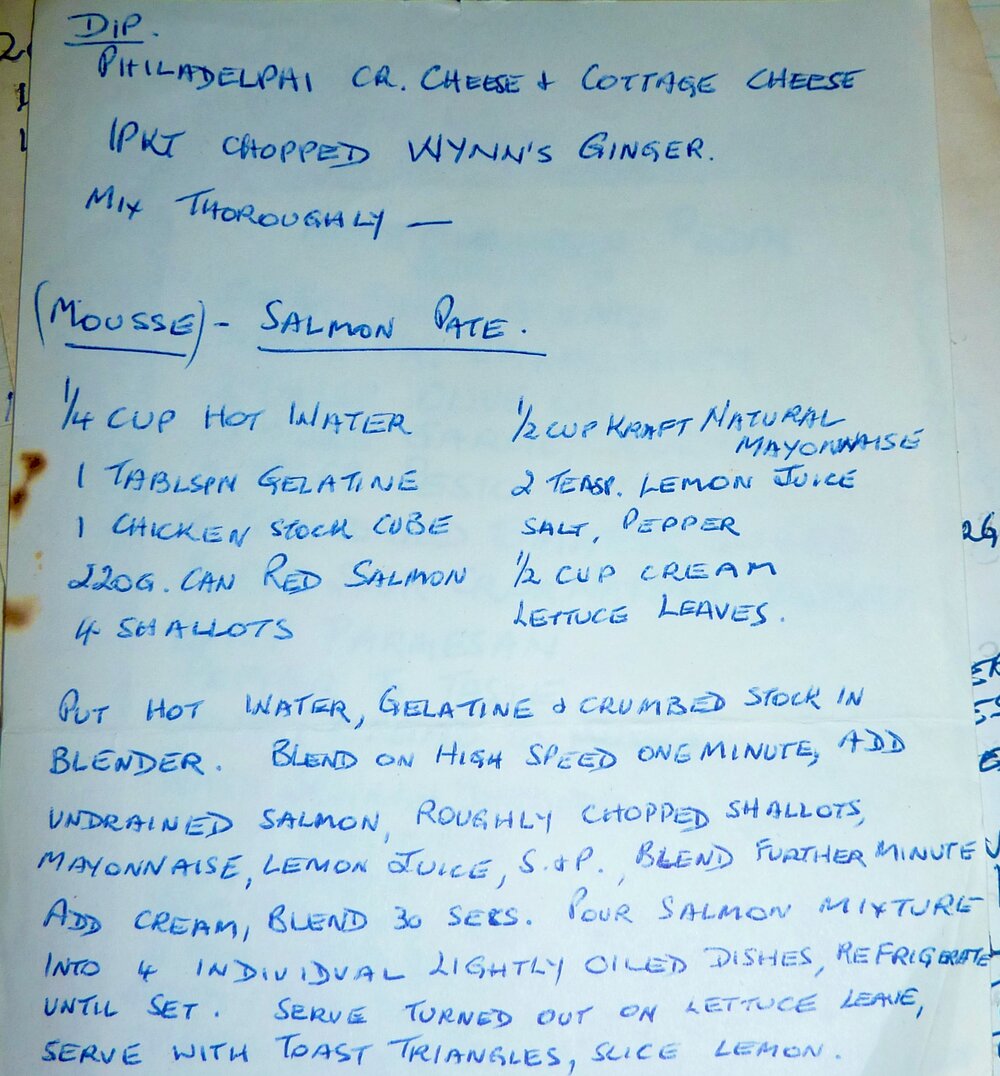 DIP.
PHILADELPHI CR. CHEESE & COTTAGE CHEESE
1PKT CHOPPED WYNN'S GINGER.
MIX THOROUGHLY —
(MOUSSE) - SALMON PATE.
1/4 CUP HOT WATER
1 TABLSPN GELATINE
1 CHICKEN STOCK CUBE
220G. CAN RED SALMON
4 SHALLOTS
1/2 CUP KRAFT NATURAL
MAYONNAISE
2 TEASP. LEMON JUICE
SALT, PEPPER
1/2 CUP CREAM
LETTUCE LEAVES.
PUT HOT WATER, GELATINE & CRUMBED STOCK IN
BLENDER. BLEND ON HIGH SPEED ONE MINUTE, ADD
UNDRAINED SALMON, ROUGHLY CHOPPED SHALLOTS,
MAYONNAISE, LEMON JUICE, S.&P., BLEND FURTHER MINUTE
ADD CREAM, BLEND 30 SECS. POUR SALMON MIXTURE
INTO 4 INDIVIDUAL LIGHTLY OILED DISHES, REFRIGERATE
UNTIL SET. SERVE TURNED OUT ON LETTUCE LEAVE,
SERVE WITH TOAST TRIANGLES, SLICE LEMON.